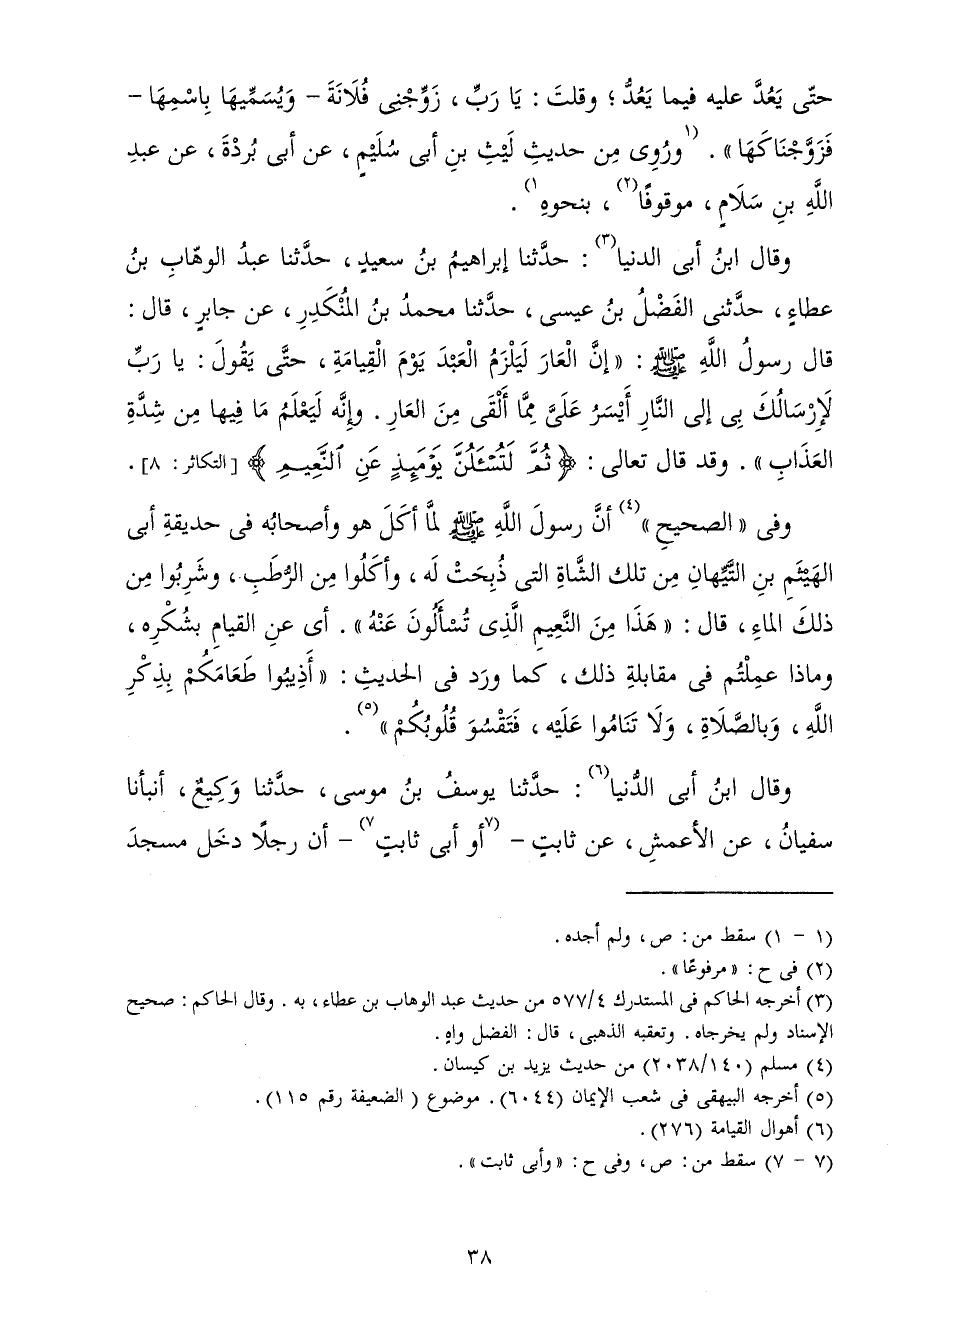 حتّى يَعُدَّ عليه فيما يَعُدُّ ؛ وقلتَ : يَا رَبِّ ، زَوِّجْنِى فُلَانَةَ – وَيُسَمِّيهَا بِاسْمِهَا –
فَزَوَّجْنَاكَهَا » . (١ورُوِى مِن حديثِ لَيْثِ بنِ أبى سُلَيْمٍ ، عن أبى بُرْدَةَ ، عن عبدِ
اللَّهِ بنِ سَلَامٍ ، موقوفًا(٢) ، بنحوِه١) .
وقال ابنُ أبى الدنيا(٣) : حدَّثنا إبراهيمُ بنُ سعيدٍ ، حدَّثنا عبدُ الوهّابِ بنُ
عطاءٍ ، حدَّثنى الفَضْلُ بنُ عيسى ، حدَّثنا محمدُ بنُ المُنْكَدِرِ ، عن جابرٍ ، قال :
قال رسولُ اللَّهِ ﷺ : « إنَّ الْعَارَ لَيَلْزَمُ الْعَبْدَ يَوْمَ القِيامَةِ ، حتَّى يَقُولَ : يا رَبِّ
لَإرْسَالُكَ بِى إلى النَّارِ أَيْسَرُ عَلَىَّ مِمَّا أَلْقَى مِنَ العَارِ . وإنَّه لَيَعْلَمُ مَا فِيها مِن شِدَّةِ
العَذَابِ » . وقد قال تعالى : ﴿ ثُمَّ لَتُسْـَٔلُنَّ يَوْمَئِذٍ عَنِ ٱلنَّعِيمِ ﴾ [ التكاثر : ٨] .
وفى « الصحيحِ »(٤) أنَّ رسولَ اللَّهِ ﷺ لمَّا أكَلَ هو وأصحابُه فى حديقةِ أبى
الهَيْثَمِ بنِ التَّيِّهانِ مِن تلك الشَّاةِ التى ذُبِحَتْ له ، وأكَلُوا مِن الرُّطَبِ ، وشَرِبُوا مِن
ذلكَ الماءِ ، قال : « هَذَا مِنَ النَّعِيمِ الَّذِى تُسْأَلُونَ عَنْهُ » . أى عنِ القيامِ بشُكْرِه ،
وماذا عمِلْتُم فى مقابلةِ ذلك ، كما ورَد فى الحديثِ : « أَذِيبُوا طَعَامَكُمْ بِذِكْرِ
اللَّهِ ، وَبالصَّلَاةِ ، وَلَا تَنَامُوا عَلَيْه ، فَتَقْسُوَ قُلُوبُكُمْ »(٥) .
وقال ابنُ أبى الدُّنيا(٦) : حدَّثنا يوسفُ بنُ موسى ، حدَّثنا وَكِيعٌ ، أنبأنا
سفيانُ ، عن الأعمشِ ، عن ثابتٍ – (٧أو أبى ثابتٍ٧) – أن رجلًا دخَل مسجدَ
(١ – ١) سقط من : ص ، ولم أجده .
(٢) فى ح : « مرفوعًا » .
(٣) أخرجه الحاكم فى المستدرك ٥٧٧/٤ من حديث عبد الوهاب بن عطاء ، به . وقال الحاكم : صحيح
الإسناد ولم يخرجاه . وتعقبه الذهبى ، قال : الفضل واهٍ .
(٤) مسلم (٢٠٣٨/١٤٠) من حديث يزيد بن كيسان .
(٥) أخرجه البيهقى فى شعب الإيمان (٦٠٤٤) . موضوع ( الضعيفة رقم ١١٥) .
(٦) أهوال القيامة (٢٧٦) .
(٧ – ٧) سقط من : ص ، وفى ح : « وأبى ثابت » .
٣٨